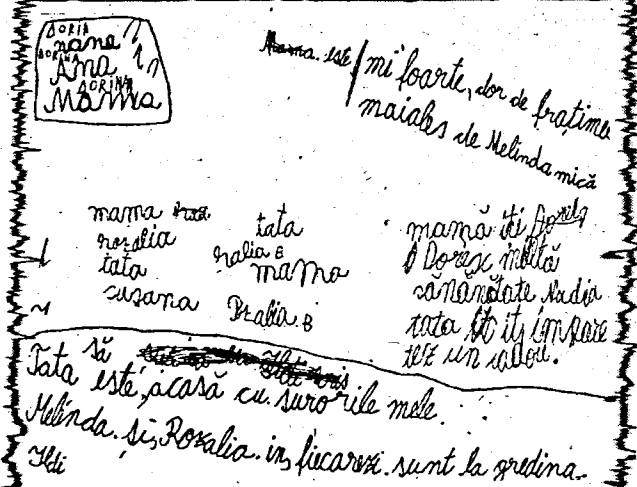 DORIA
nana
DORINA
Ana
DORINA
Mama
Mama. este
mi foarte, dor de frațime
maiales de Melinda mică
mama
rozalia
tata
susana
tata
ralia B
mama
Bralia. B
mamă iți Doresc
Doresc multă
sănănătate Nadia
tata iți impare
tez un cadou.
să
Tata este, acasă cu. suro rile mele.
Melinda. și, Rozalia. in, fiecarezi. sunt la gredina.
Ildi